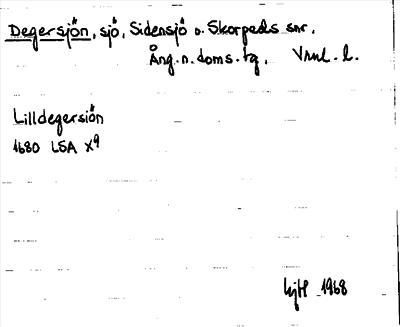 Degersjön, sjö, Sidensjö o. Skorpeds snr,
Ång. n. doms. tg, Vnnl. l.
Lilldegersjön
1680 LSA X9
1968